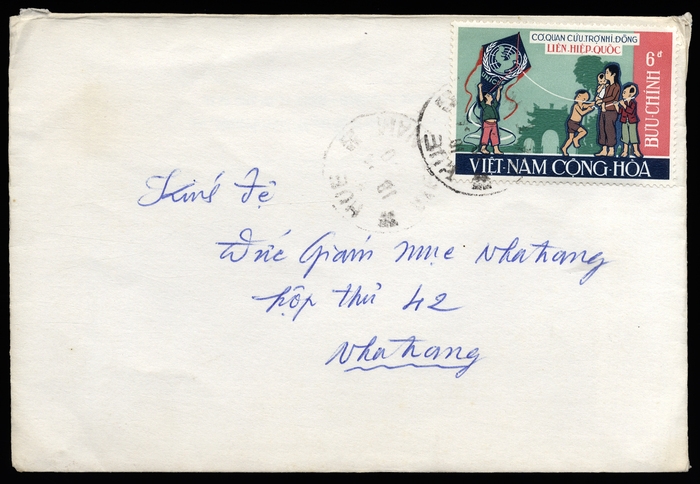 CƠ.QUAN CỨU.TRỢ.NHI.ĐỒNG
LIÊN.HIỆP.QUỐC
6đ
BƯU-CHÍNH
UNICEF
VIỆT-NAM CỘNG-HÒA
HUE
HUE
Kính đệ
Đức Giám mục Nhatrang
hộp thư 42
Nhatrang